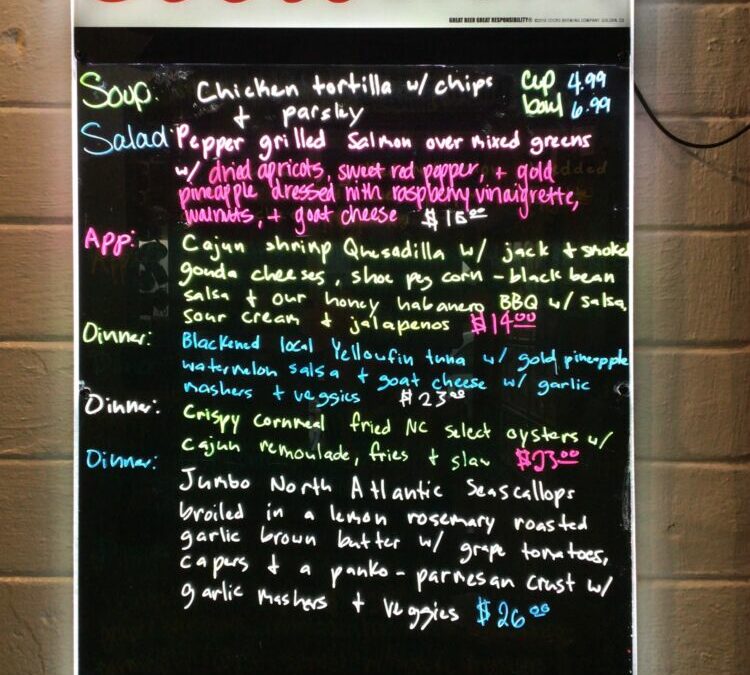 GREAT BEER GREAT RESPONSIBILITY®
COORS BREWING COMPANY, GOLDEN, CO
Soup: Chicken tortilla w/ chips cup 4.99
+ parsley bowl 6.99
Salad: Pepper grilled Salmon over mixed greens
w/ dried apricots, sweet red pepper, + gold
pineapple dressed with raspberry vinaigrette,
walnuts, + goat cheese $16.00
App: Cajun shrimp Quesadilla w/ jack + smoked
gouda cheeses, shoe peg corn - black bean
salsa + our honey habanero BBQ w/ salsa,
sour cream + jalapenos $14.00
Dinner: Blackened local Yellowfin tuna w/ gold pineapple
watermelon salsa + goat cheese w/ garlic
mashers + veggies $23.00
Dinner: Crispy cornmeal fried NC select oysters w/
Cajun remoulade, fries + slaw $23.00
Dinner: Jumbo North Atlantic Seascallops
broiled in a lemon rosemary roasted
garlic brown butter w/ grape tomatoes,
capers + a panko - parmesan crust w/
garlic mashers + veggies $26.00